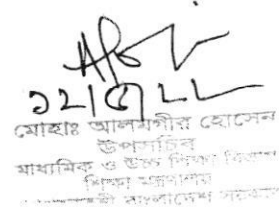 ১২/৫/২২
মোহাঃ আলমগীর হোসেন
উপসচিব
মাধ্যমিক ও উচ্চ শিক্ষা বিভাগ
শিক্ষা মন্ত্রণালয়
বাংলাদেশ সরকার